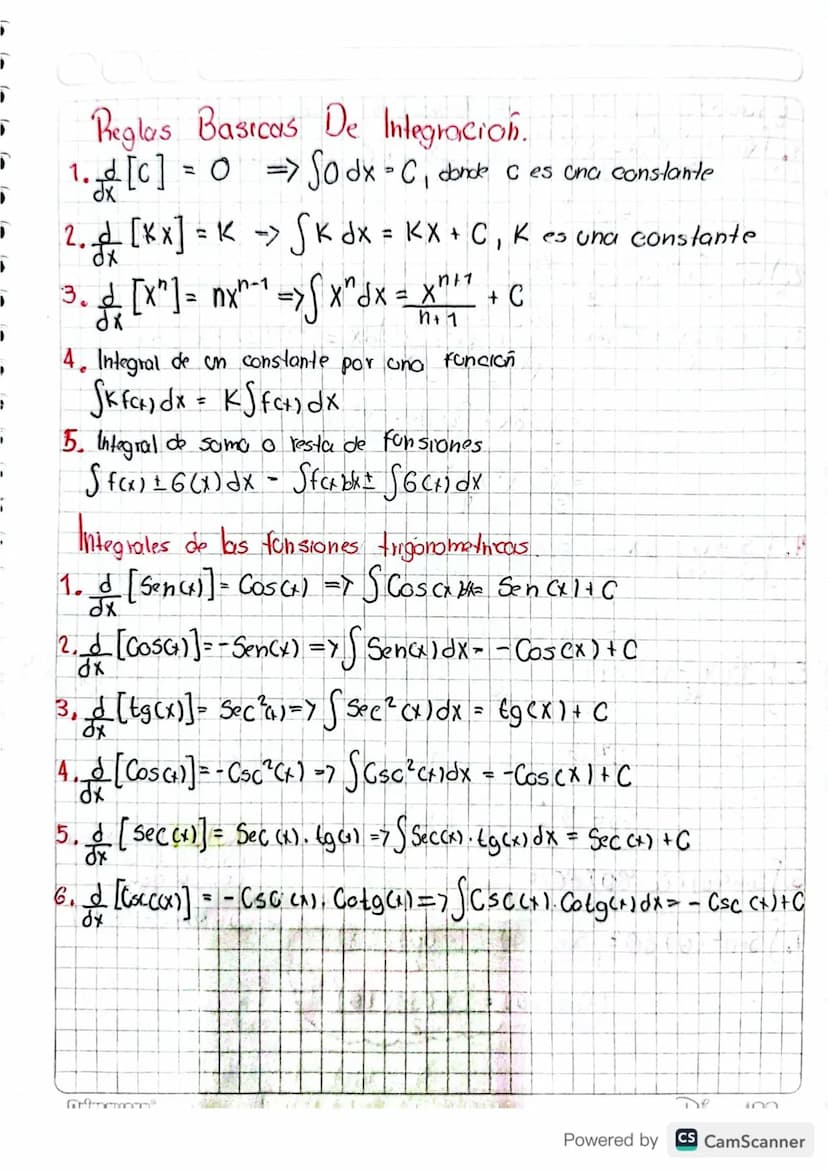 Reglas Basicas De Integración.
1. d/dx [C] = 0 => ∫0 dx = C, donde c es una constante
2. d/dx [Kx] = K -> ∫K dx = KX + C, K es una constante
3. d/dx [Xⁿ] = nxⁿ⁻¹ => ∫xⁿdx = xⁿ⁺¹/n+1 + C
4. Integral de un constante por una función
∫K f(x) dx = K∫f(x) dx
5. Integral de suma o resta de funsiones
∫f(x) ± G(x) dx = ∫f(x) dx ± ∫G(x) dx
Integrales de las funsiones trigonometricas
1. d/dx [Sen(x)] = Cos(x) => ∫Cos(x) dx = Sen(x) + C
2. d/dx [Cos(x)] = -Sen(x) => ∫Sen(x) dx = -Cos(x) + C
3. d/dx [tg(x)] = Sec²(x) => ∫Sec²(x) dx = tg(x) + C
4. d/dx [Cos(x)] = -Csc²(x) => ∫Csc²(x) dx = -Cos(x) + C
5. d/dx [Sec(x)] = Sec(x). tg(x) => ∫Sec(x). tg(x) dx = Sec(x) + C
6. d/dx [Csc(x)] = -Csc(x). Cotg(x) => ∫Csc(x). Cotg(x) dx = - Csc(x) + C
Powered by CS CamScanner